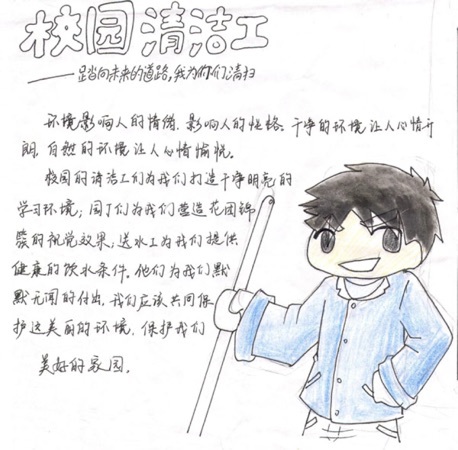 校园清洁工
——踏向未来的道路,我为你们清扫
环境影响人的情绪,影响人的性格。干净的环境让人心情开
朗,自然的环境让人心情愉悦。
校园的清洁工们为我们打造干净明亮的
学习环境;园丁们为我们营造花团锦
簇的视觉效果;送水工为我们提供
健康的饮水条件。他们为我们默
默无闻的付出,我们应该共同保
护这美丽的环境,保护我们
美好的家园。